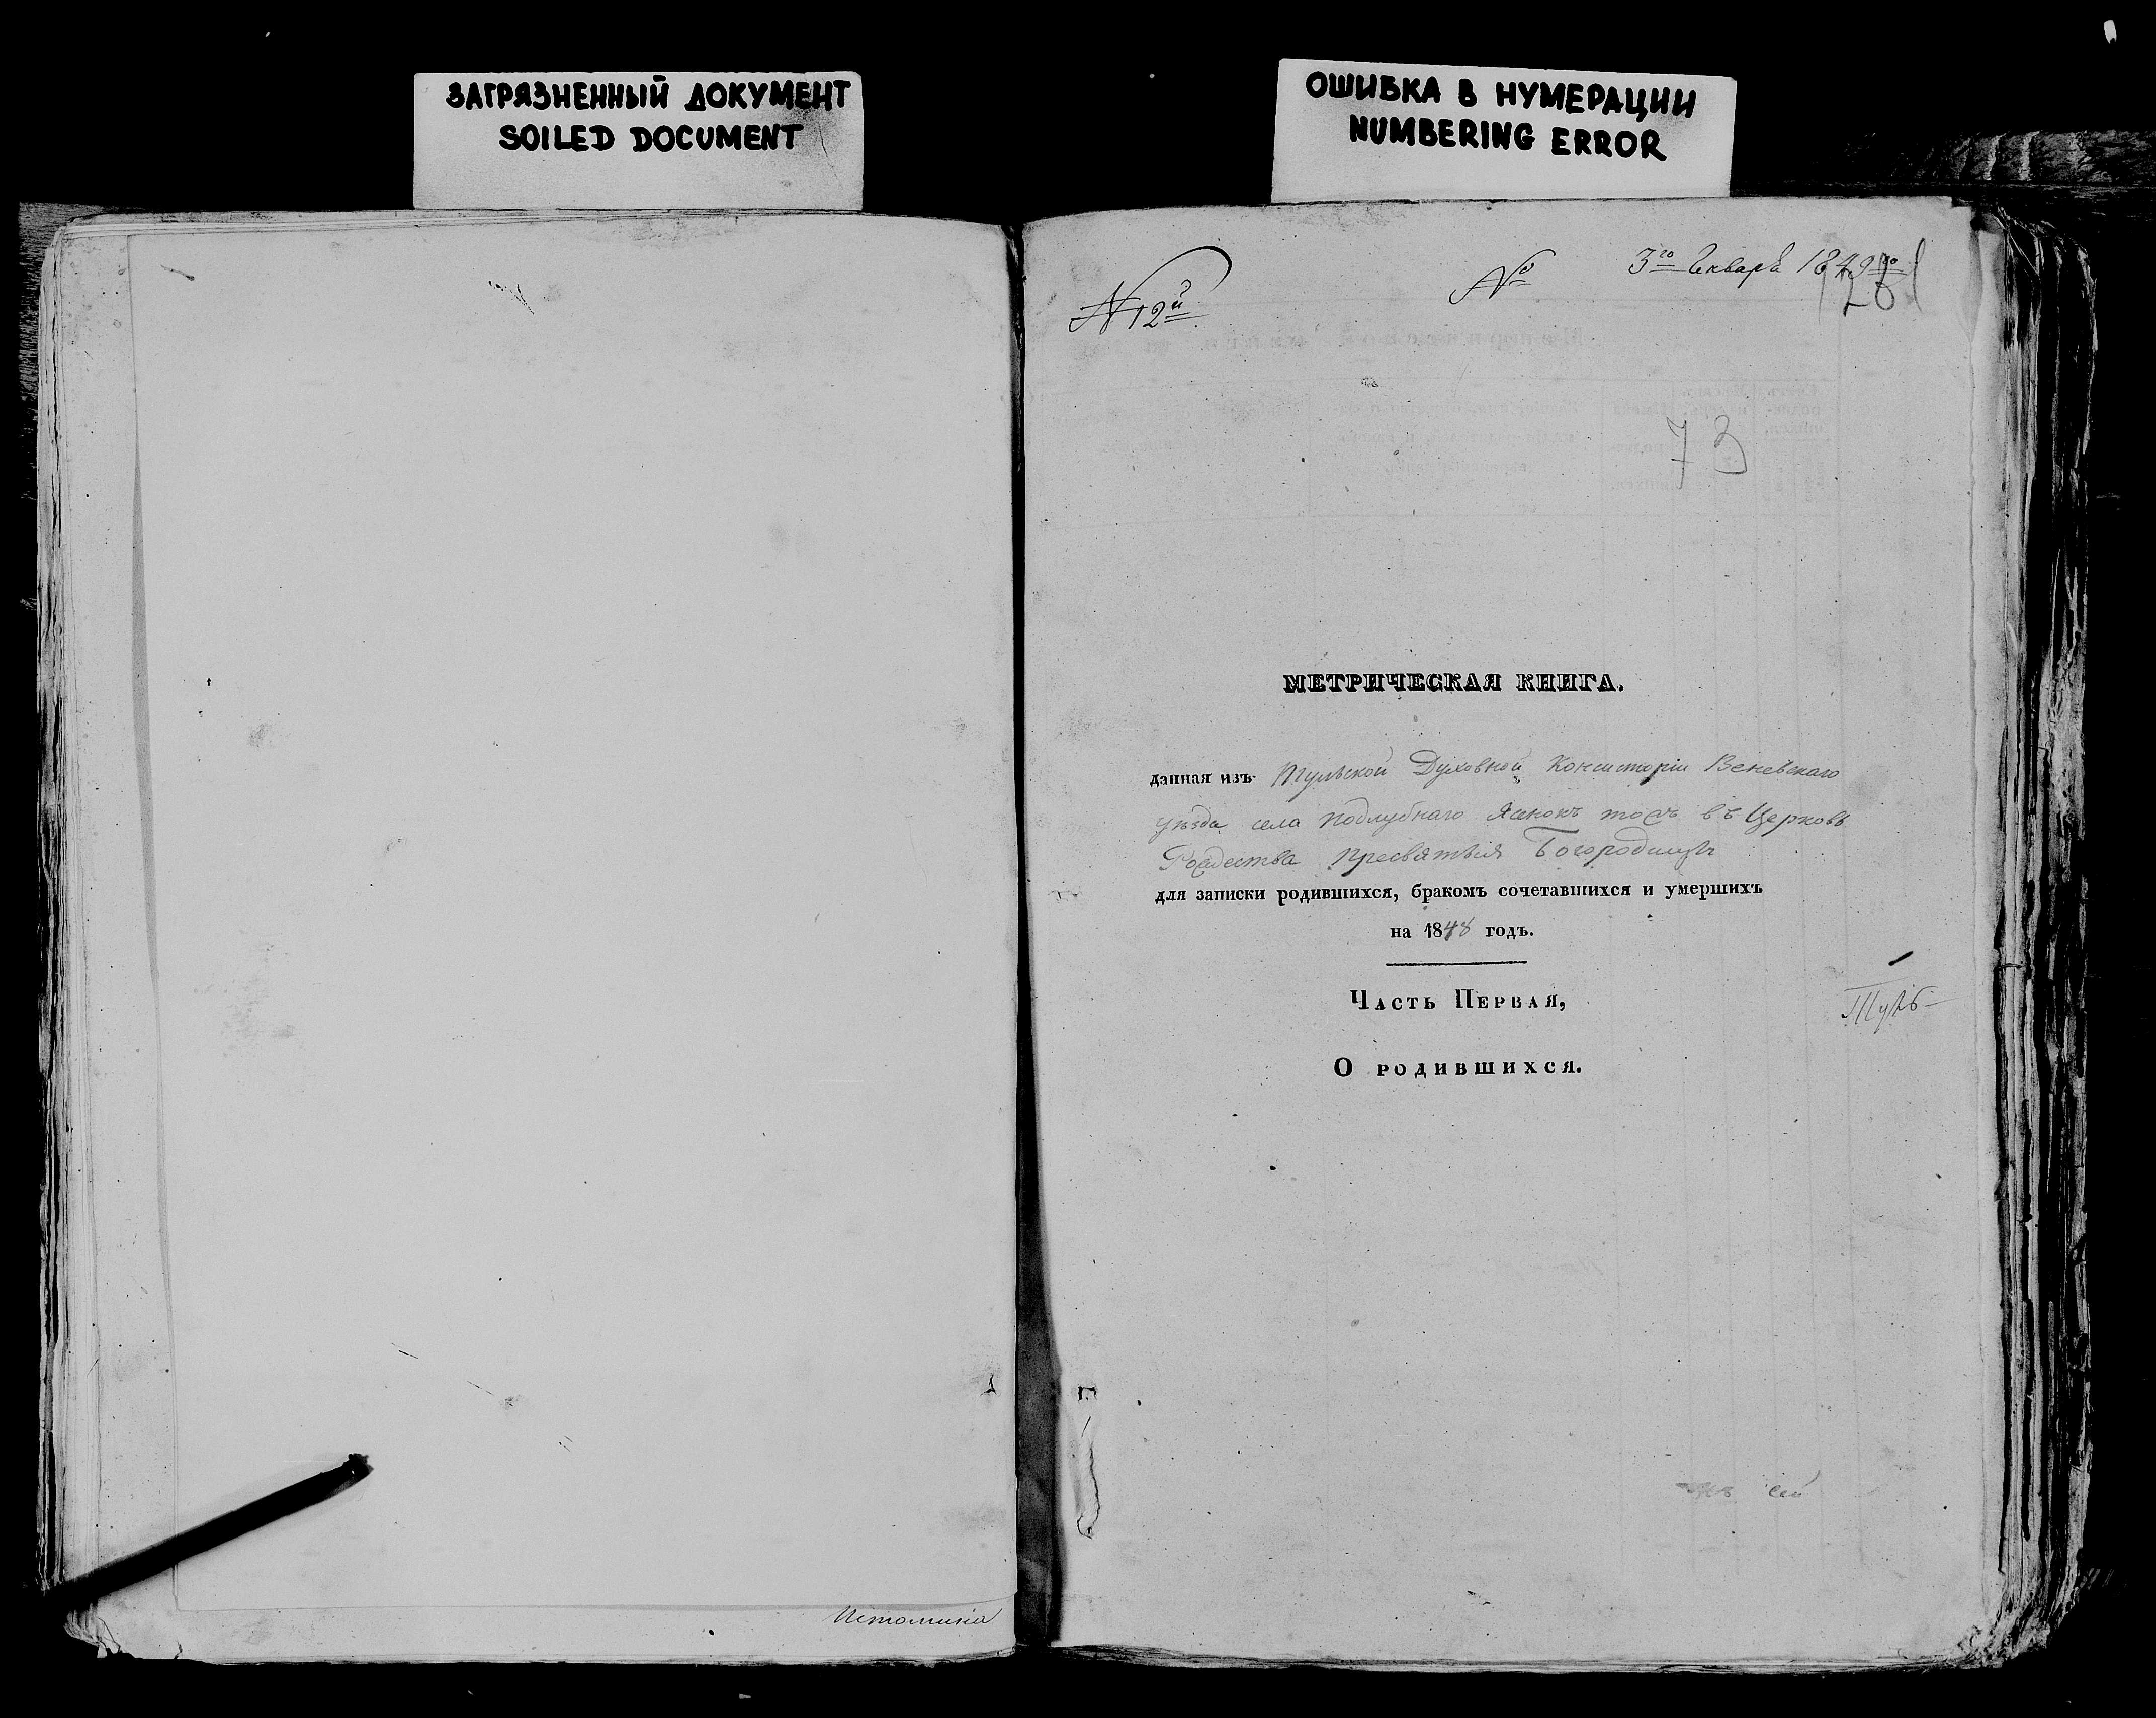 ЗАГРЯЗНЕННЫЙ ДОКУМЕНТ
SOILED DOCUMENT
ОШИБКА В НУМЕРАЦИИ
NUMBERING ERROR
N 12й
№ 3го Января 1849го
73
МЕТРИЧЕСКАЯ КНИГА.
данная изъ Тульской Духовной Консисторіи Веневскаго
уѣзда села Подлубнаго тожъ въ Церковь
Рождества Пресвятыя Богородицы
для записки родившихся, бракомъ сочетавшихся и умершихъ
на 1848 годъ.
Часть Первая,
О родившихся.
Туль-
сей
Истомина